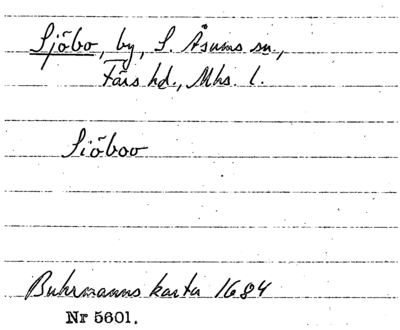 Sjöbo, by, S. Åsums sn.,
Färs hd., Mhs. l.
Siöboo
Buhrmanns karta 1684
Nr 5601.